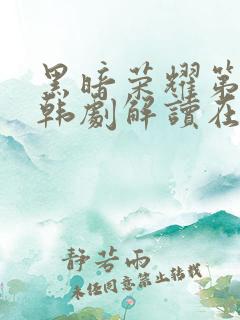 黑暗荣耀第
韩劇解讀在
靜若雨
未经同意禁止转载